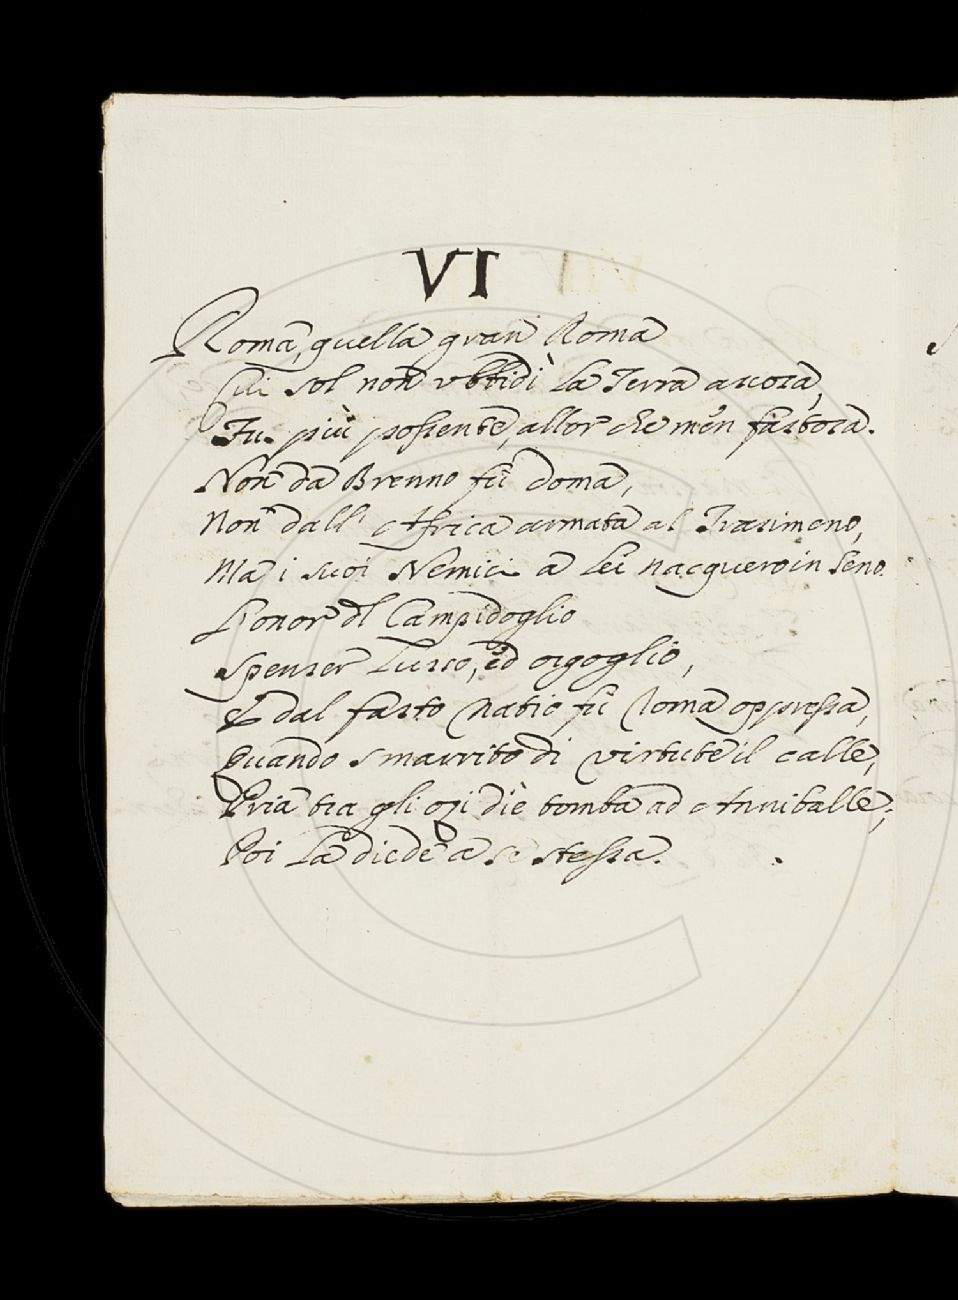 VI
Roma, quella gran Roma
Cui sol non vbbidì la Terra ascosa,
Fu più possente, allor che men fastosa.
Non da Brenno fù doma,
Non dall' Africa armata al Trasimeno,
Ma i suoi Nemici a lei nacquero in seno.
L'onor dl Campidoglio
Spenser Lusso, ed orgoglio,
E dal fasto natio fù Roma oppressa,
Quando smarrito di virtute il calle,
Pria tra gli ozi diè tomba ad Anniballe;
Poi la diede a se stessa.